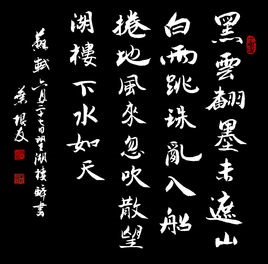 黑雲翻墨未遮山
白雨跳珠亂入船
捲地風來忽吹散望
湖樓下水如天
蘇軾 六月二十七日望湖樓醉書
葉根友